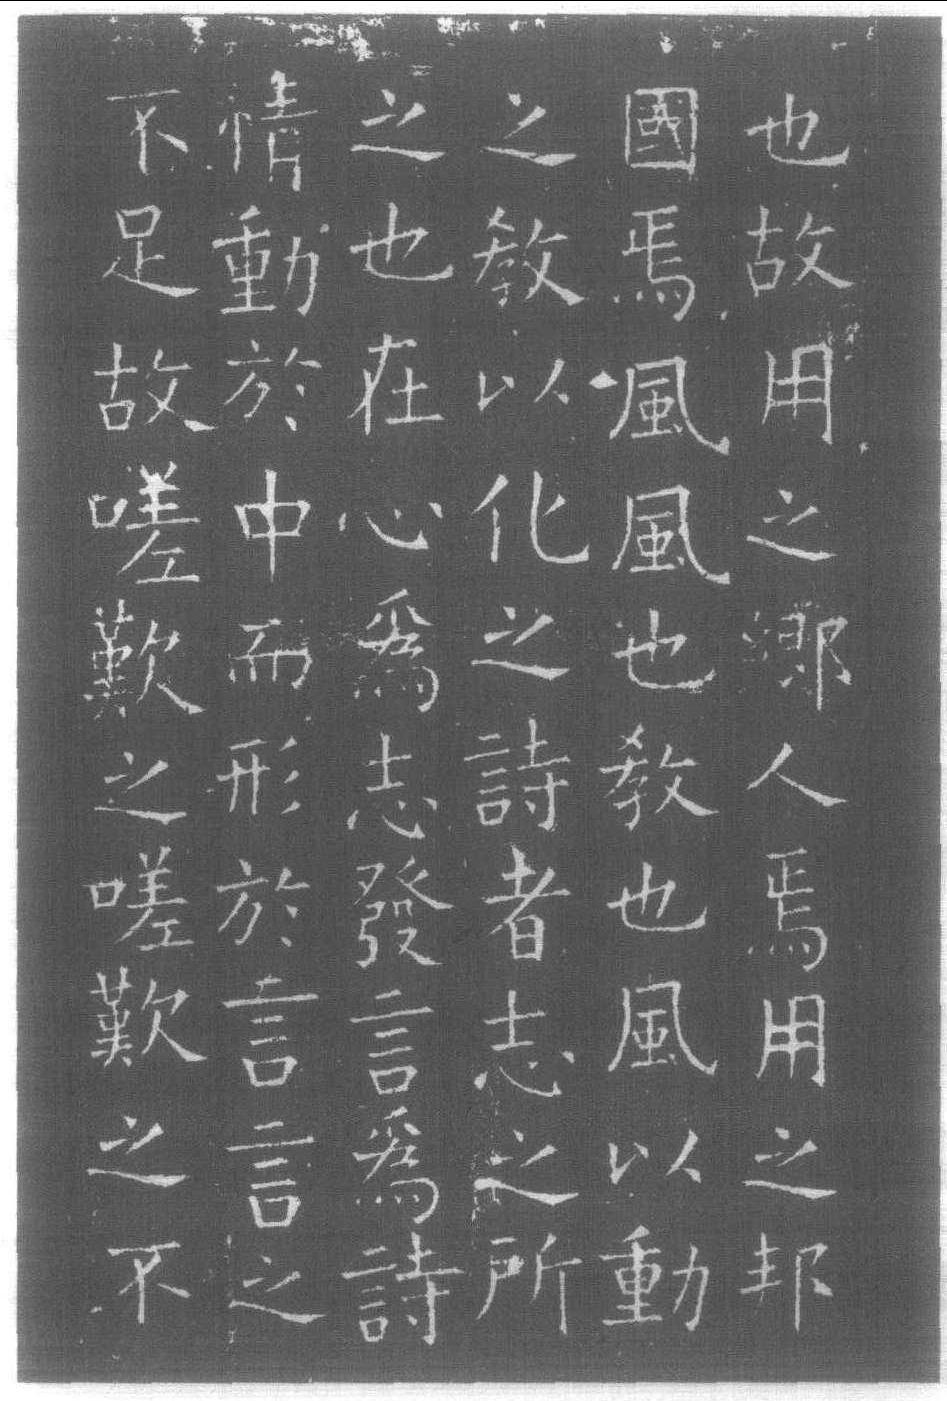 也故用之鄉人焉用之邦
國焉風風也教也風以動
之教以化之詩者志之所
之也在心爲志發言爲詩
情動於中而形於言言之
不足故嗟歎之嗟歎之不